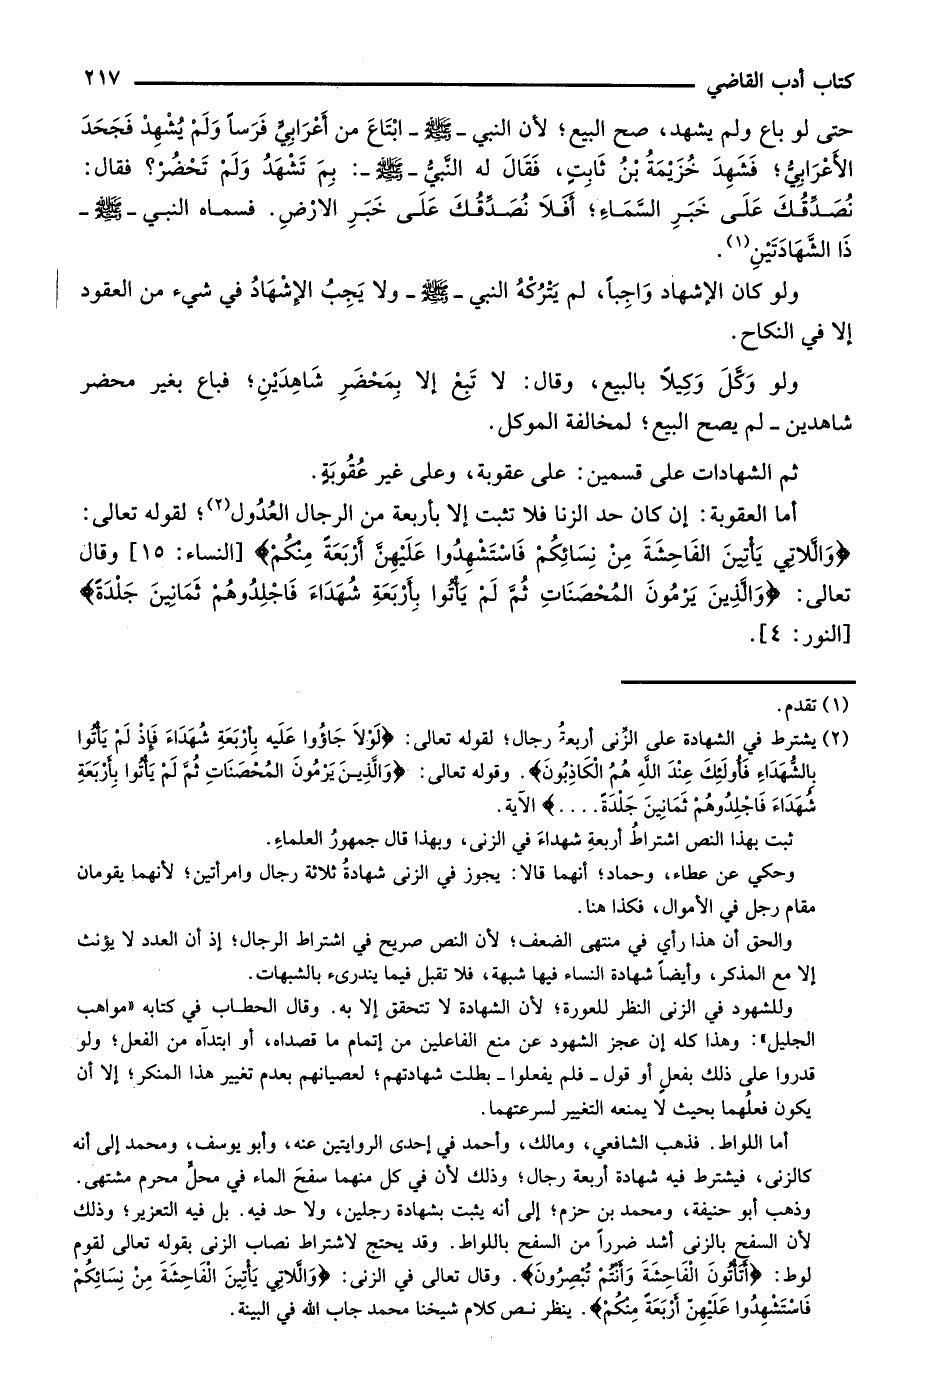 كتاب أدب القاضي ٢١٧
حتى لو باع ولم يشهد، صح البيع؛ لأن النبي - ﷺ - ابْتَاعَ من أَعْرَابِيٍّ فَرَساً وَلَمْ يُشْهِدْ فَجَحَدَ
الأَعْرَابِيُّ؛ فَشَهِدَ خُزَيْمَةُ بْنُ ثَابِتٍ، فَقَالَ له النَّبيُّ - ﷺ -: بِمَ تَشْهَدُ وَلَمْ تَحْضُرْ؟ فقال:
نُصَدِّقُكَ عَلَى خَبَرِ السَّمَاءِ؛ أَفَلَا نُصَدِّقُكَ عَلَى خَبَرِ الارْضِ. فسماه النبي - ﷺ -
ذَا الشَّهَادَتَيْنِ(١).
ولو كان الإشهاد وَاجِباً، لم يَتْرُكْهُ النبي - ﷺ - ولا يَجِبُ الإِشْهَادُ في شيء من العقود
إلا في النكاح.
ولو وَكَّلَ وَكِيلاً بالبيع، وقال: لا تَبعْ إلا بِمَحْضَرِ شَاهِدَيْنِ؛ فباع بغير محضر
شاهدين - لم يصح البيع؛ لمخالفة الموكل.
ثم الشهادات على قسمين: على عقوبة، وعلى غير عُقُوبَةٍ.
أما العقوبة: إن كان حد الزنا فلا تثبت إلا بأربعة من الرجال العُدُول(٢)؛ لقوله تعالى:
﴿وَاللَّاتِي يَأْتِينَ الفَاحِشَةَ مِنْ نِسَائِكُمْ فَاسْتَشْهِدُوا عَلَيْهِنَّ أَرْبَعَةً مِنْكُمْ﴾ [النساء: ١٥] وقال
تعالى: ﴿وَالَّذِينَ يَرْمُونَ المُحْصَنَاتِ ثُمَّ لَمْ يَأْتُوا بِأَرْبَعَةِ شُهَدَاءَ فَاجْلِدُوهُمْ ثَمَانِينَ جَلْدَةً﴾
[النور: ٤].
(١) تقدم.
(٢) يشترط في الشهادة على الزِّنى أربعةُ رجال؛ لقوله تعالى: ﴿لَوْلاَ جَاؤُوا عَلَيه بِأَرْبَعَةِ شُهَدَاءَ فَإِذْ لَمْ يَأْتُوا
بِالشُّهَدَاءِ فَأُولَئِكَ عِنْدَ اللَّهِ هُمُ الْكَاذِبُونَ﴾. وقوله تعالى: ﴿وَالَّذِينَ يَرْمُونَ المُحْصَنَاتِ ثُمَّ لَمْ يَأْتُوا بِأَرْبَعَةِ
شُهَدَاءَ فَاجْلِدُوهُمْ ثَمَانِينَ جَلْدَةً....﴾ الآية.
ثبت بهذا النص اشتراطُ أربعةِ شهداءَ في الزنى، وبهذا قال جمهورُ العلماءِ.
وحكي عن عطاء، وحماد؛ أنهما قالا: يجوز في الزنى شهادةُ ثلاثة رجال وامرأتين؛ لأنهما يقومان
مقام رجل في الأموال، فكذا هنا.
والحق أن هذا رأي في منتهى الضعف؛ لأن النص صريح في اشتراط الرجال؛ إذ أن العدد لا يؤنث
إلا مع المذكر، وأيضاً شهادة النساء فيها شبهة، فلا تقبل فيما يندرىء بالشبهات.
وللشهود في الزنى النظر للعورة؛ لأن الشهادة لا تتحقق إلا به. وقال الحطاب في كتابه «مواهب
الجليل»: وهذا كله إن عجز الشهود عن منع الفاعلين من إتمام ما قصداه، أو ابتدآه من الفعل؛ ولو
قدروا على ذلك بفعلٍ أو قول - فلم يفعلوا - بطلت شهادتهم؛ لعصيانهم بعدم تغيير هذا المنكر؛ إلا أن
يكون فعلُهما بحيث لا يمنعه التغيير لسرعتهما.
أما اللواط. فذهب الشافعي، ومالك، وأحمد في إحدى الروايتين عنه، وأبو يوسف، ومحمد إلى أنه
كالزنى، فيشترط فيه شهادة أربعة رجال؛ وذلك لأن في كل منهما سفحَ الماء في محلٍّ محرم مشتهى.
وذهب أبو حنيفة، ومحمد بن حزم؛ إلى أنه يثبت بشهادة رجلين، ولا حد فيه. بل فيه التعزير؛ وذلك
لأن السفح بالزنى أشد ضرراً من السفح باللواط. وقد يحتج لاشتراط نصاب الزنى بقوله تعالى لقوم
لوط: ﴿أَتَأْتُونَ الْفَاحِشَةَ وَأَنْتُمْ تُبْصِرُونَ﴾. وقال تعالى في الزنى: ﴿وَاللَّاتِي يَأْتِينَ الْفَاحِشَةَ مِنْ نِسَائِكُمْ
فَاسْتَشْهِدُوا عَلَيْهِنّ أَرْبَعَةً مِنْكُمْ﴾. ينظر نص كلام شيخنا محمد جاب الله في البينة.